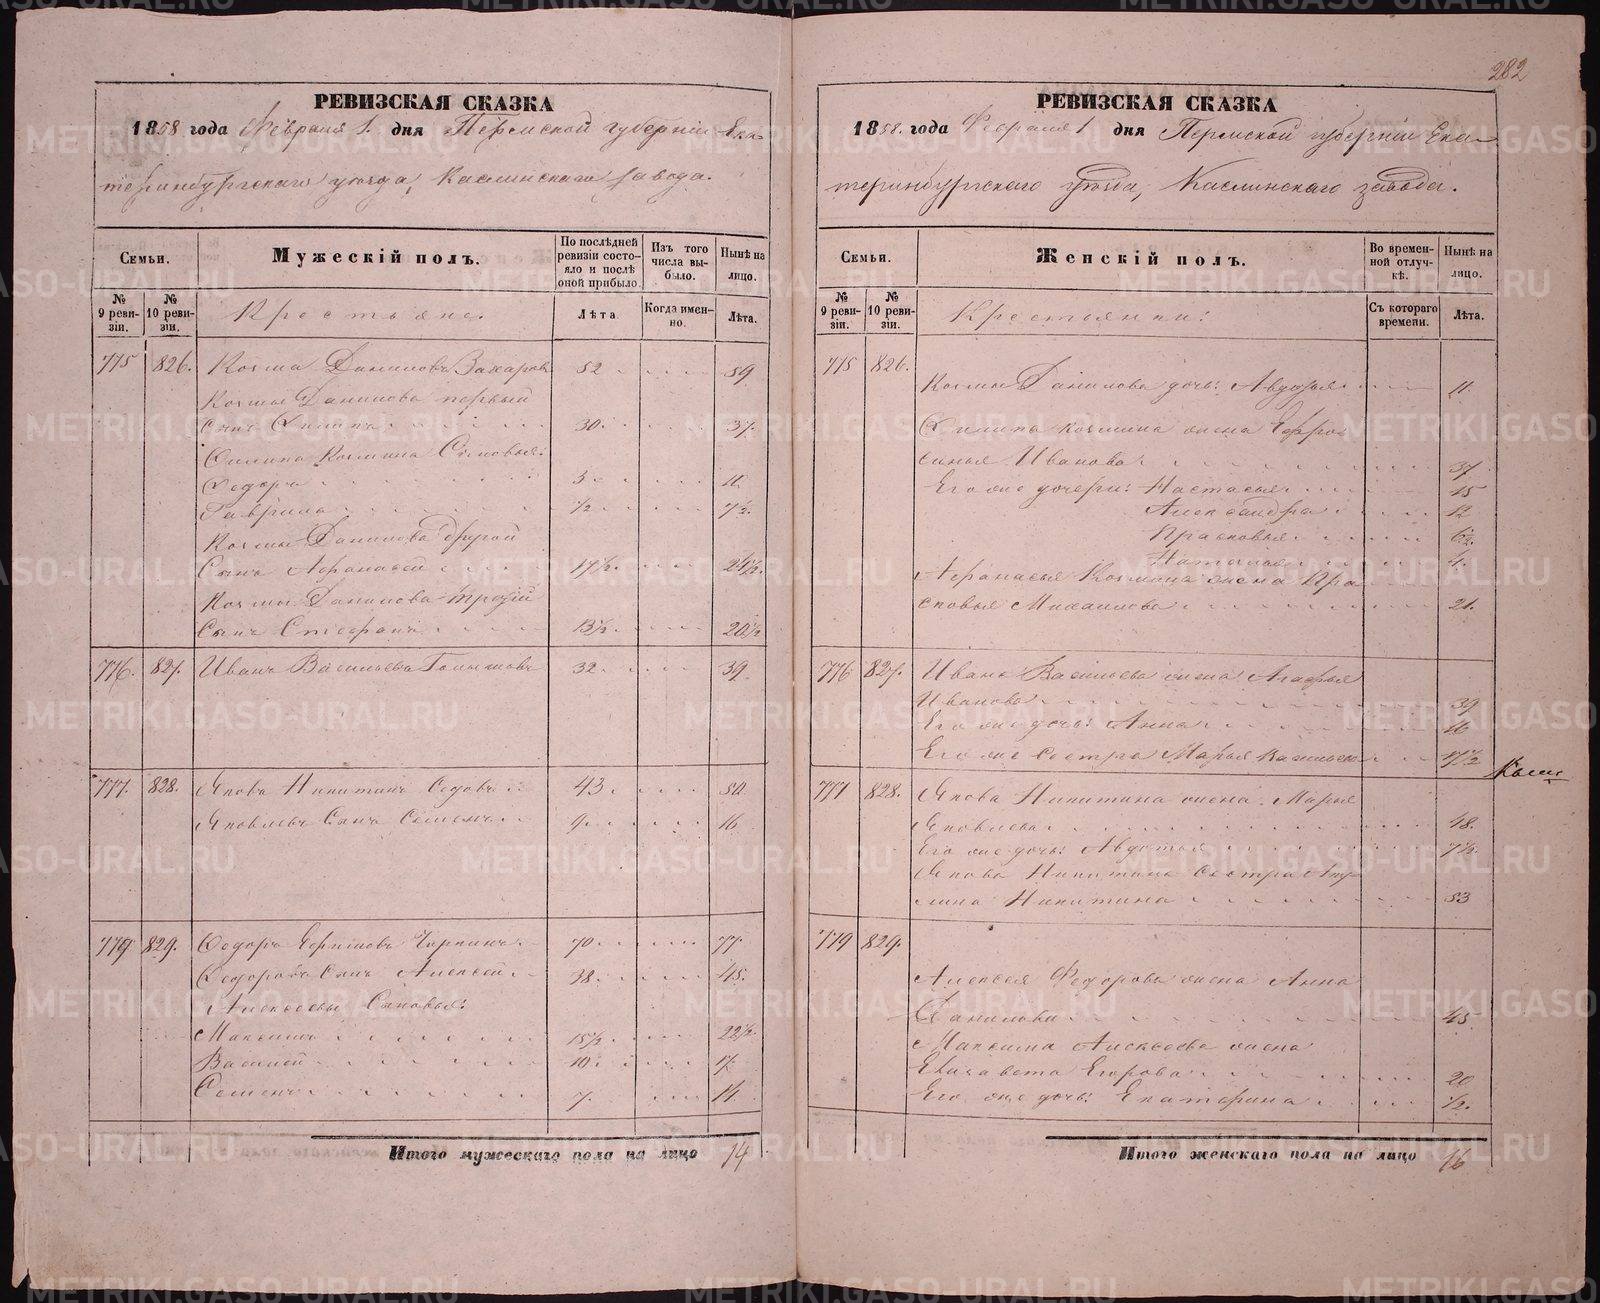 РЕВИЗСКАЯ СКАЗКА
1858 года Февраля 1. дня Пермской губернiи Ека-
теринбургскаго уѣзда, Каслинскаго завода.
Семьи.
Мужескiй полъ.
По послѣдней ревизiи состо-яло и послѣ оной прибыло.
Изъ того числа вы-было.
Нынѣ на лицо.
№ 9 реви-зiи.
№ 10 реви-зiи.
Крестьяне.
Лѣта
Когда имен-но.
Лѣта.
775 826. Козма Даниловъ Захаровъ 52 59
Козмы Данилова первый
Сынъ Филипъ 30. 37.
Филипа Козмина Сыновья:
Федоръ 11.
Гаврила 1/2 7 1/2.
Козмы Данилова другой
Сынъ Афанасей 17 1/2. 24 1/2.
Козмы Данилова третiй
Сынъ Стефанъ 13 1/2. 20 1/2
776. 827. Иванъ Васильевъ 32 39
777. 828. Яковъ Никитинъ Седовъ 43 50
Яковлевъ Сынъ Семенъ 9. 16
779 829. Федоръ 70 77.
Федоровъ Сынъ Алексей 38. 45.
Алексеевы Сыновья:
Максимъ 15 1/2 22 1/2.
Василей 10. 17.
Семенъ 7. 14
Итого мужескаго пола на лицо 14
282
РЕВИЗСКАЯ СКАЗКА
1858. года Февраля 1 дня Пермской губернiи Ека-
теринбургскаго уѣзда, Каслинскаго завода.
Семьи.
Женскiй полъ.
Во времен-ной отлуч-кѣ.
Нынѣ на лицо.
№ 9 реви-зiи.
№ 10 реви-зiи.
Крестьянки:
Съ котораго времени.
Лѣта.
775 826.
Козмы Данилова дочь: Авдотья 11.
Филипа Козмина жена Ефро-
синья Иванова 37
Его же дочери: Настасья 15
Александра 12
Прасковья 6 1/2.
Наталья 4.
Афанасья Козмина жена Пра
сковья Михайлова 21.
776 827. Ивана Васильева жена Агафья
Иванова 39
Его же дочь: Анна 16
Его же сестра Марья Васильева
777 828. Якова Никитина жена Марья
Яковлева 48.
Его же дочь: Авдотья 7 1/2.
Якова Никитина Сестра Аку-
лина Никитина 53
779 829.
Алексея Федорова жена Анна
Данилова 45
Максима Алексеева жена
Елизавета Егорова 20
Его же дочь: Екатерина 1/2.
Итого женскаго пола на лицо 16
METRIKI.GASO-URAL.RU